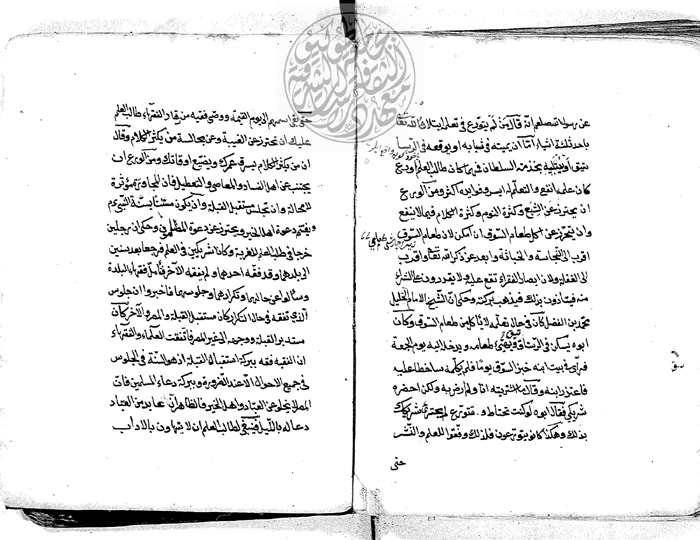 عن رسول الله صلعم انه قال من لم يتورع في تعلمه ابتلاه الله تعالى
باحد ثلثة اشياء اما ان يميته في شبابه او يوقعه في الرساتيق
او يبتليه بخدمة السلطان فمهما كان طالب العلم اورع
كان علمه انفع والتعلم له ايسر وفوايده اكثر ومن الورع
ان يحترز عن الشبع وكثرة النوم وكثرة الكلام فيما لا ينفع
وان يتحرز عن اكل طعام السوق ان امكن لان طعام السوق
اقرب الى النجاسة والخباثة وابعد عن ذكر الله تعالى واقرب
الى الغفلة ولان ابصار الفقراء تقع عليه ولا يقدرون على الشراء
منه فيتاذون بذلك فيذهب بركته وحكى ان الشيخ الامام الجليل
محمد بن الفضل كان في حال تعلمه لا ياكل من طعام السوق وكان
ابوه يسكن في الرستاق ويهيئ طعامه ويدخل اليه يوم الجمعة
فراى في بيت ابنه خبز السوق يوما فلم يكلمه ساخطا عليه
فاعتذر ابنه وقال ما اشتريته انا ولم ارض به ولكن احضره
شريكي فقال ابوه لو كنت تحتاط وتتورع لم يجترئ شريكك
بذلك وهكذا كانوا يتورعون فلذلك وفقوا للعلم والنشر
حتى
حتى بقي اسمهم الى يوم القيمة ووصى فقيه من زهاد الفقهاء طالب العلم
عليك ان تحترز عن الغيبة وعن مجالسة من يكثر الكلام وقال
ان من يكثر الكلام يسرق عمرك ويضيع اوقاتك ومن الورع ان
يجتنب عن اهل الفساد والمعاصي والتعطيل فان المجاورة مؤثرة
لا محالة وان يجلس مستقبل القبلة وان يكون مستنا بسنة النبي عم
ويغتنم دعوة اهل الخير ويحترز عن دعوة المظلوم وحكى ان رجلين
خرجا في طلب العلم للغربة وكانا شريكين في العلم فرجعا بعد سنين
الى بلدهما وقد فقه احدهما ولم يفقه الآخر فتأمل فقهاء البلدة
وسألوا عن حالهما وتكرارهما وجلوسهما فاخبروا ان جلوس
الذي تفقه في حال التكرار كان مستقبل القبلة والمصر والآخر كان
مستدبر القبلة ووجهه الى غير المصر فاتفقت العلماء والفقهاء
ان الفقيه فقه ببركة استقبال القبلة اذ هو السنة في الجلوس
في جميع الاحوال الا عند الضرورة وببركة دعاء المسلمين فان
المصر لا يخلو عن العباد واهل الخير فالظاهر ان عابدا من العباد
دعا له بالليل فينبغي لطالب العلم ان لا يتهاون بالآداب